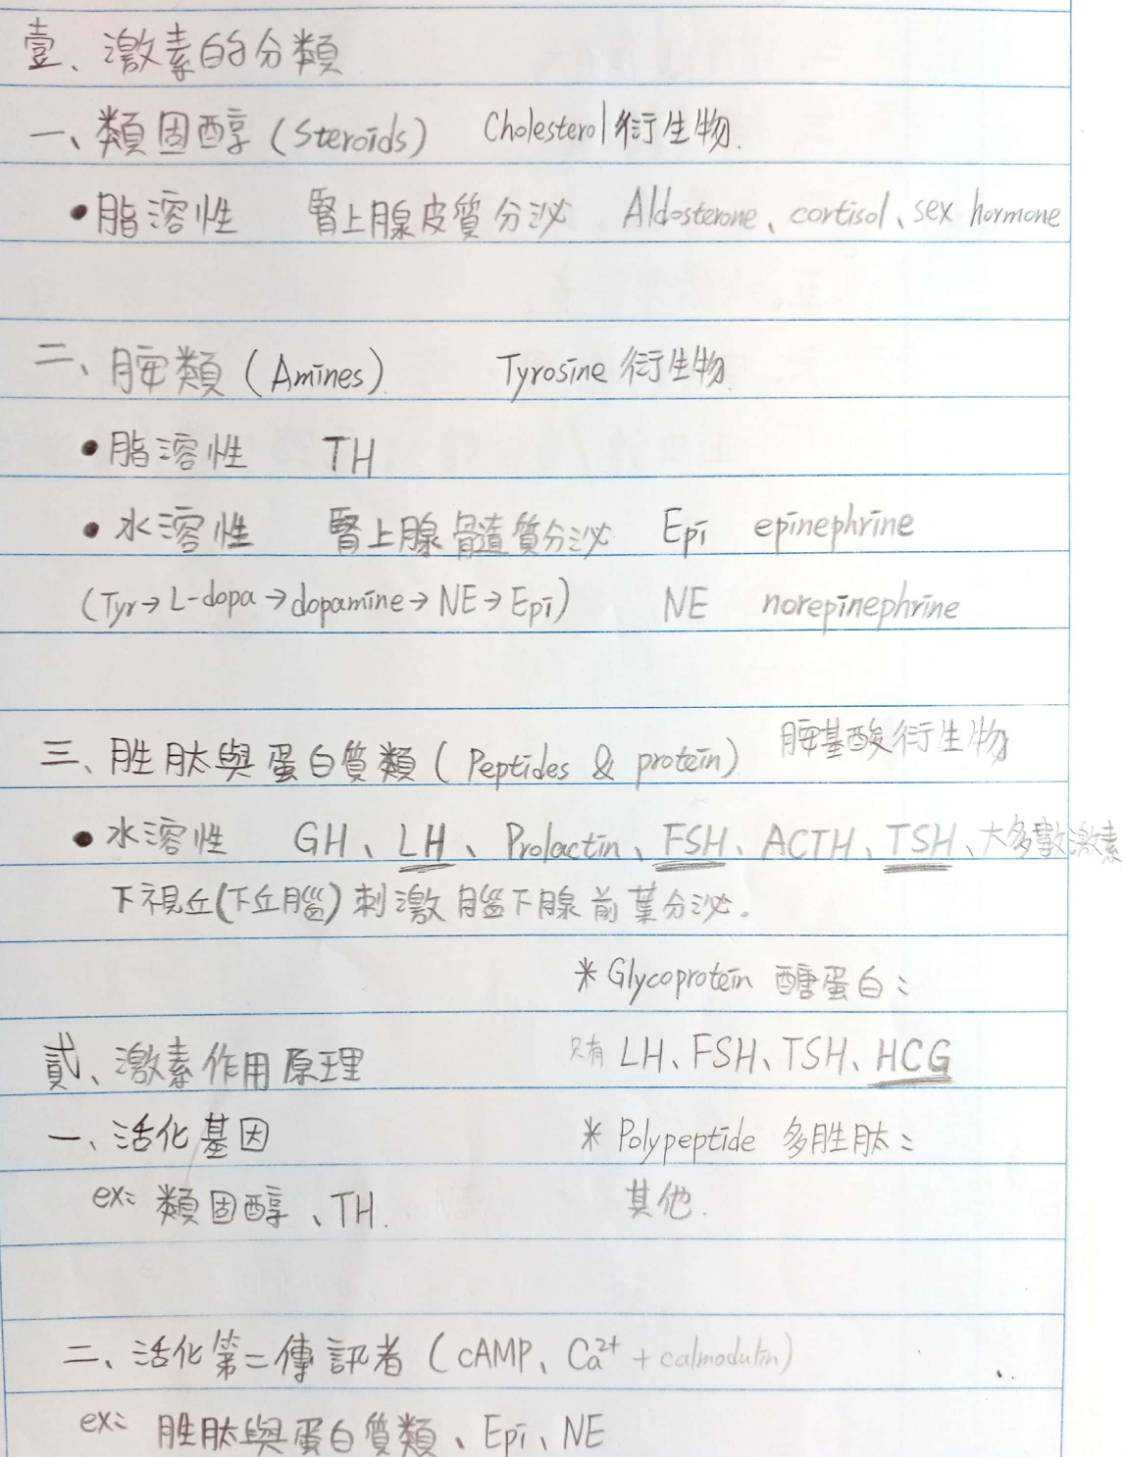 壹、激素的分類
一、類固醇(Steroids) Cholesterol衍生物.
•脂溶性 腎上腺皮質分泌 Aldosterone、cortisol、sex hormone
二、胺類(Amines). Tyrosine衍生物.
•脂溶性 TH
•水溶性 腎上腺髓質分泌 Epi epinephrine
(Tyr→L-dopa→dopamine→NE→Epi) NE norepinephrine
三、胜肽與蛋白質類(Peptides & protein) 胺基酸衍生物
•水溶性 GH、LH、Prolactin、FSH、ACTH、TSH、大多數激素
下視丘(下丘腦)刺激腦下腺前葉分泌。
*Glycoprotein 醣蛋白:
貳、激素作用原理 只有LH、FSH、TSH、HCG
一、活化基因 *Polypeptide 多胜肽:
ex: 類固醇、TH. 其他.
二、活化第二傳訊者(cAMP、Ca²⁺+calmodulin)
ex: 胜肽與蛋白質類、Epi、NE